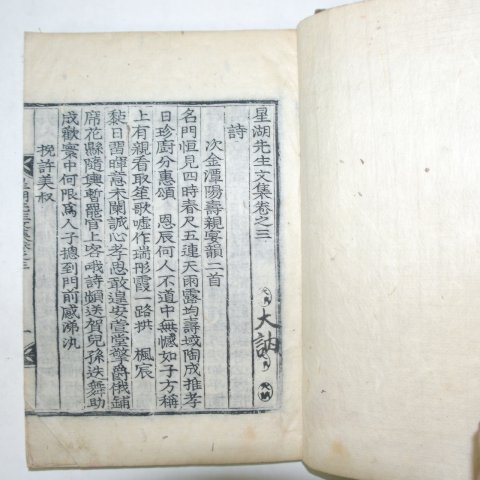 星湖先生文集卷之三
詩
次金潭陽壽親宴韻二首
名門恒見四時春尺五連天雨露均壽域陶成推孝
日珍廚分惠頒　恩辰何人不道中無憾如子方稱
上有親看取笙歌嘘作瑞彤霞一路拱　楓宸
藜日習暉意未闌誠心孝思敢遑安萱堂擎爵俄鋪
席花縣隨輿暫罷官上客峨詩頻送賀兒孫迭舞助
成歡案中何限爲人子摠到門前感涕汍
挽許美叔
大訥